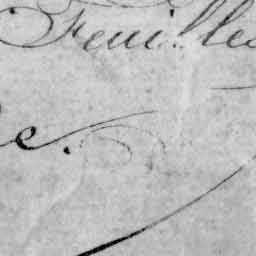 Feuilles
e.